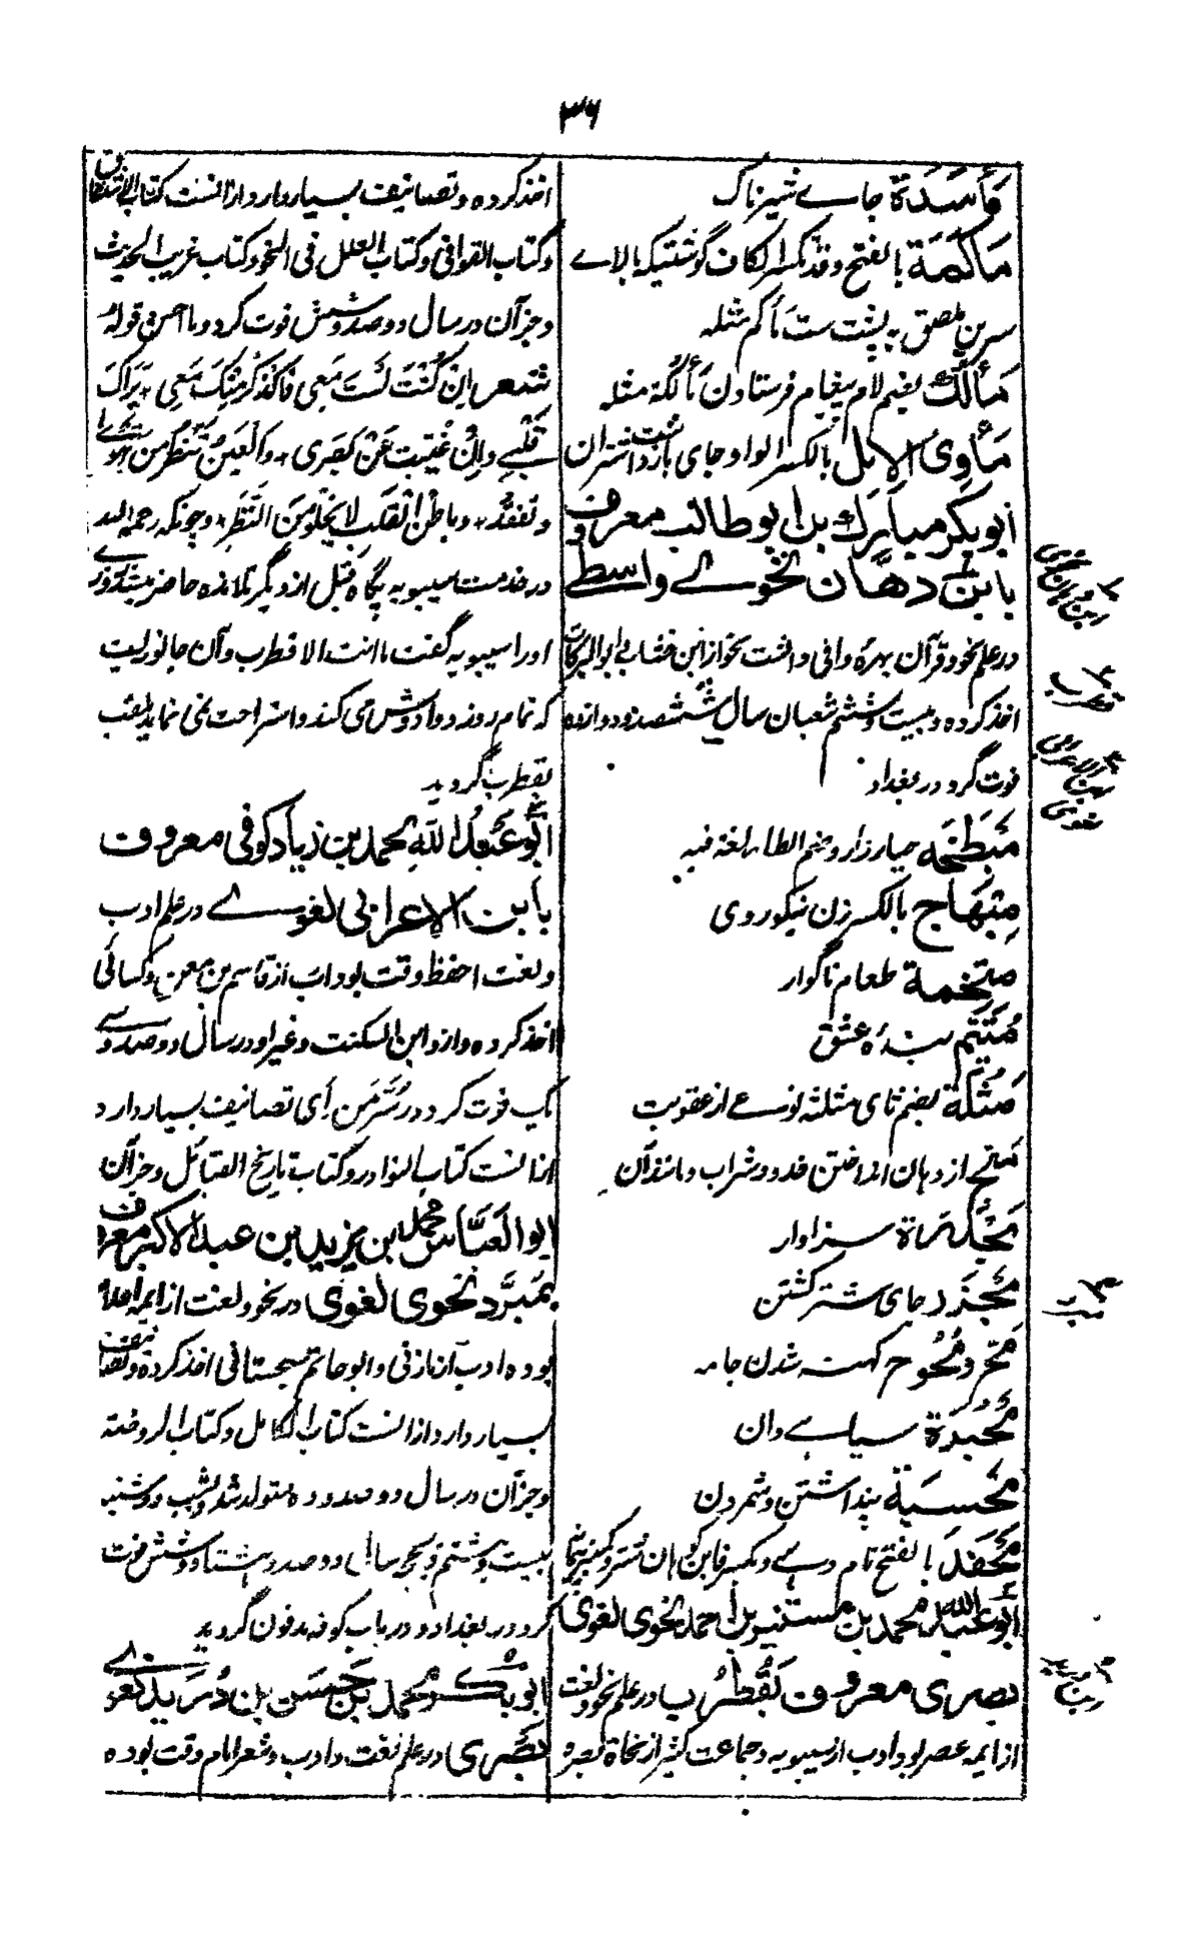 ۳۶
مَأسَدَة جاے شیرناک
مَأکَمَة بالفتح وقد تکسر الکاف گوشتیکه بالاے
سرین ملصق به پشت ست مَأکَم مثله
مَألُك بضم لام پیغام فرستادن مَألُکة مثله
مَأوِی الابل بالکسر الواو جای بازداشت شتران
ابوبکر مبارک بن ابوطالب معروف
بابن دهّان نحوے واسطے
در علم نحو و قرآن بهره وافی داشت نحو از ابن خشاب و ابوالبرکات
اخذ کرده و بیست و ششم شعبان سال ششصد و دوازده
فوت کرد در بغداد
مَبطَخه خیارزار و بضم الطاء لغة فیه
مِبهَاج بالکسر زن نیکوروی
متخمة طعام ناگوار
مُتَیَّم بندهٔ عشق
مَثُلَة بضم ثای مثلثه نوعے از عقوبت
مج از دهان انداختن خدو و شراب و مانند آن
مَجدَرَة سزاوار
مَجزَر جای شتر کشتن
مَحّ و مُحُوح کهنه شدن جامه
مَحبَرَة سیاهے دان
مَحسَبَة پنداشتن و شمردن
مَحفَد بالفتح نام دهے و بکسر فا بن کوهان شتر و کمنبر
ابوعبدالله محمد بن مستنیر بن احمد نحوی لغوی
بصری معروف بقُطرُب در علم نحو و لغت
از ایمه عصر بود ادب از سیبویه و جماعت کثیر از نحاة بصره
اخذ کرده و تصانیف بسیار دارد ازانست کتاب الاشتقاق
و کتاب القوافی و کتاب العلل فی النحو و کتاب غریب الحدیث
و جز آن در سال دو صد و شش فوت کرد و ما احسن قوله
شعر اِن کُنتَ لَستَ مَعِی فَالذِکرُ مِنکَ مَعِی ٭ یَرَاکَ
قَلبِے وَاِن غِبتَ عَن بَصَرِی ٭ وَالعَینُ تَنظُرُ مَن تَهوٰے
وتَفقُدُه ٭ وباطِنُ القَلبِ لا یَخلُو مِنَ النَّظَرِ ٭ و چونکه رحمه الله
در خدمت سیبویه پگاه قبل از دیگر تلامذه حاضر میشد روزے
او را سیبویه گفت ما انت الا قطرب و آن جانوریست
که تمام روز دوادوش می کند و استراحت نمی نماید ملقب
بقطرب گردید
ابوعَبدُ اللهِ محمد بن زیاد کوفی معروف
بابن الاعرابی لغوے در علم ادب
و لغت احفظ وقت بود ادب از قاسم بن معن و کسائی
اخذ کرده و ازو ابن السکیت و غیر او در سال دو صد و سے
یک فوت کرد در سُرَّ مَن رَأی تصانیف بسیار دارد
ازانست کتاب النوادر و کتاب تاریخ القبائل و جز آن
ابوالعَبَّاس محمد بن یزید بن عبد الاکبر معروف
بمُبَرَّد نحوی لغوی در نحو و لغت از ایمه اعلام
بوده ادب از مازنی و ابوحاتم سجستانی اخذ کرده و تصانیف
بسیار دارد ازانست کتاب الکامل و کتاب الروضه
و جز آن در سال دو صد و ده متولد شد و شب دوشنبه
بیست و هشتم ذیحجه سال دو صد و هشتاد و شش فوت
کرد در بغداد و در باب کوفه مدفون گردید
ابوبکر محمد بن حَسَن بن دُرَید لغوے
بَصری در علم لغت و ادب و شعر امام وقت بوده
ابن دهان نحوی
قطرب
ابن الاعرابی لغوی
مبرد
ابن درید